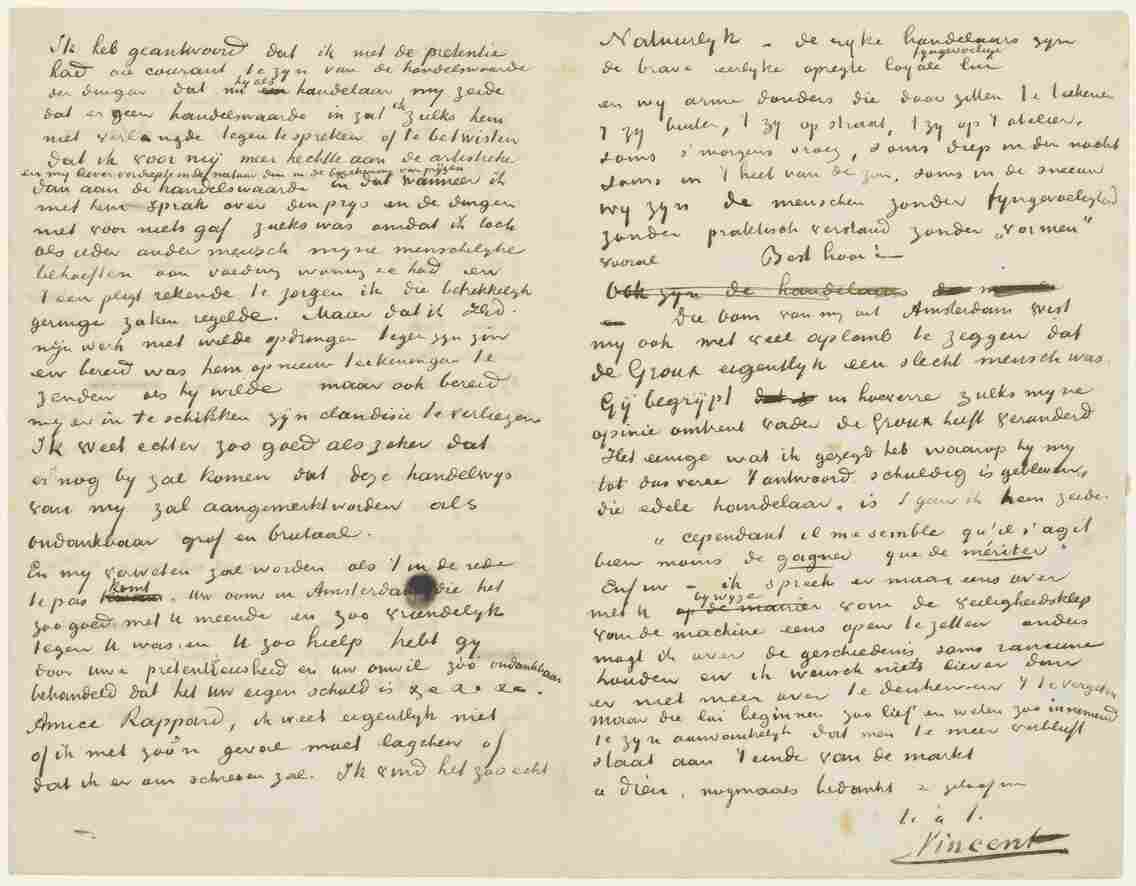 Ik heb geantwoord dat ik niet de pretentie
had au courant te zyn van de handelswaarde
der dingen dat nu hy als handelaar my zeide
dat er geen handelswaarde in zat ik zulks hem
niet verlangde tegen te spreken of te betwisten
dat ik voor mij meer hechtte aan de artistieke
en my liever verdiepte in de natuur dan in de berekening van prijzen
dan aan de handelswaarde in dat wanneer ik
met hem sprak over den prys en de dingen
niet voor niets gaf zulks was omdat ik toch
als ieder ander mensch myne menschelyke
behoeften aan voeding woning &c had en
't een pligt rekende te zorgen ik die betrekkelyk
geringe zaken regelde. Maar dat ik ZEd.
mijn werk niet wilde opdringen tegen zyn zin
en bereid was hem op nieuw teekeningen te
zenden als hy wilde maar ook bereid
my er in te schikken zijn clandisie te verliezen
Ik weet echter zoo goed als zeker dat
er nog by zal komen dat deze handelwys
van my zal aangemerkt worden als
ondankbaar grof en brutaal.
En my verweten zal worden als 't in de rede
te pas komt. Uw oom in Amsterdam die het
zoo goed met U meende en zoo vriendelyk
tegen U was en U zoo hielp hebt gy
door uwe pretentieusheid en uw onwil zoo ondankbaar
behandeld dat het uw eigen schuld is &c &c.
Amice Rappard, ik weet eigentlyk niet
of ik met zoo'n geval moet lagchen of
dat ik er om schreien zal. Ik vind het zoo echt
Natuurlyk – de ryke handelaars zyn
fyngevoelige
de brave eerlyke opregte loyale lui
en wy arme donders die daar zitten te teekenen
't zy buiten, 't zy op straat, 't zy op 't atelier,
soms s'morgens vroeg, soms diep in den nacht
soms in 't heet van de zon, soms in de sneeuw
wy zyn de menschen zonder fyngevoeligheid
zonder praktisch verstand zonder „vormen"
vooral Best hoor!
Ook zyn de handelaars
Die oom van my uit Amsterdam wist
my ook met veel aplomb te zeggen dat
de Groux eigentlyk een slecht mensch was.
Gij begrijpt in hoeverre zulks myne
opinie omtrent vader de Groux heeft veranderd
Het eenige wat ik gezegd heb waarop hy my
tot dusverre 't antwoord schuldig is gebleven,
die edele handelaar, is 't geen ik hem zeide.
„cependant il me semble qu'il s'agit
bien moins de gagner que de mériter"
Enfin – ik spreek er maar eens over
met U by wyze van de veiligheidsklep
van de machine eens open te zetten anders
mogt ik over de geschiedenis soms rancune
houden en ik wensch niets liever dan
er niet meer over te denken en 't te vergeten
maar die lui beginnen zoo lief en weten zoo innemend
te zyn aanvankelyk dat men te meer verbluft
staat aan 't einde van de markt
à Dieu, nogmaals bedankt & geloof me
t. à t.
Vincent